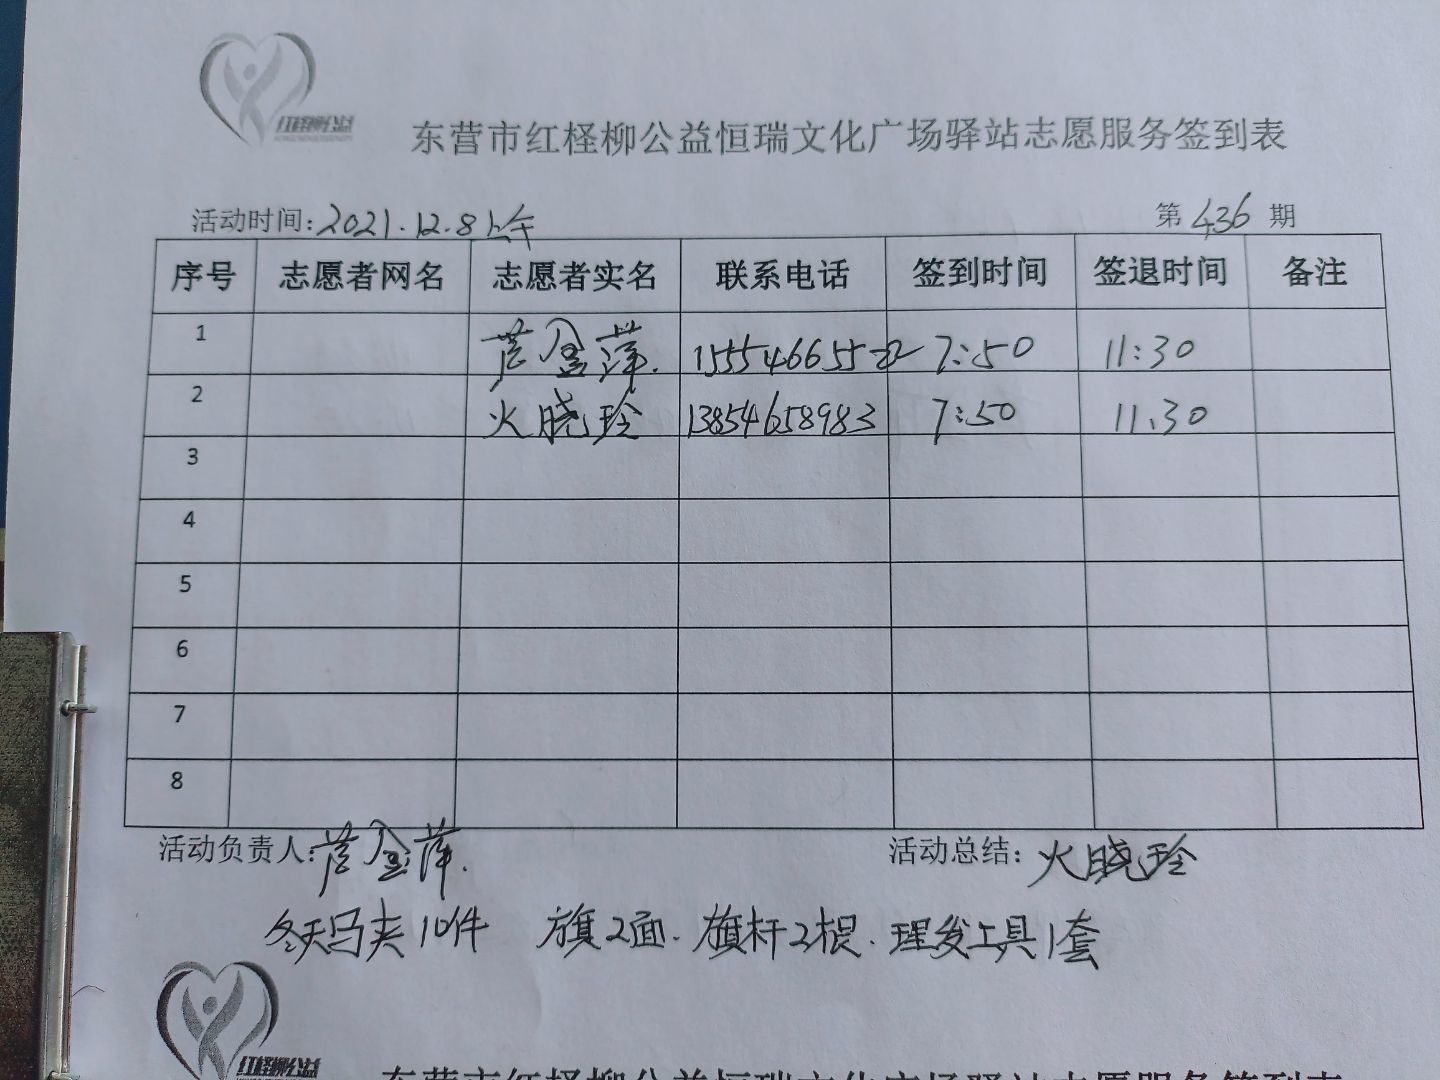 红柽柳公益
东营市红柽柳公益恒瑞文化广场驿站志愿服务签到表
活动时间：2021.12.8上午 第 436 期
序号 志愿者网名 志愿者实名 联系电话 签到时间 签退时间 备注
1 金萍. 155546655 7:50 11:30
2 火晓玲 13854658983 7:50 11.30
3
4
5
6
7
8
活动负责人：金萍. 活动总结：火晓玲
冬天马夹10件 旗2面. 旗杆2根. 理发工具1套
红柽柳公益
东营市红柽柳公益恒瑞文化广场驿站志愿服务签到表